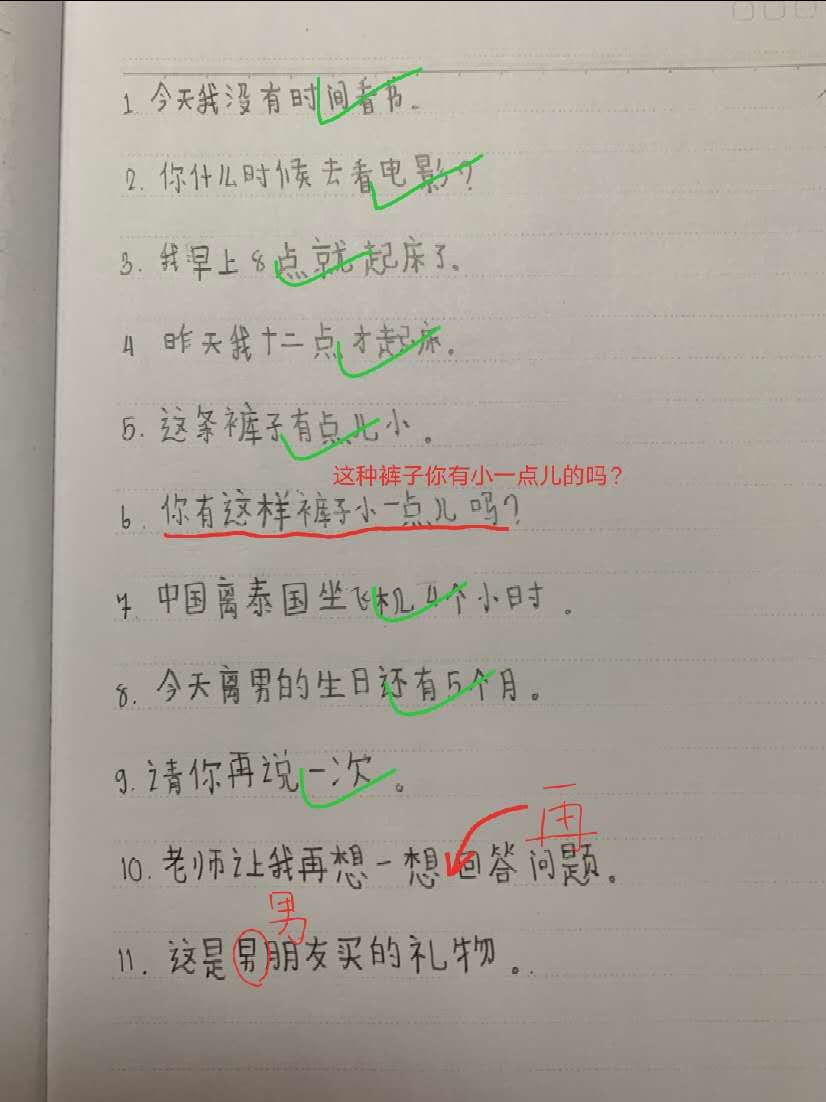 1 今天我没有时间看书.
2. 你什么时候去看电影?
3. 我早上8点就起床了。
4 昨天我十二点才起床。
5. 这条裤子有点儿小。
这种裤子你有小一点儿的吗?
6. 你有这样裤子小一点儿吗?
7. 中国离泰国坐飞机4个小时.
8. 今天离男的生日还有5个月。
9. 请你再说一次。
再
10. 老师让我再想一想回答问题。
男
11. 这是男朋友买的礼物。